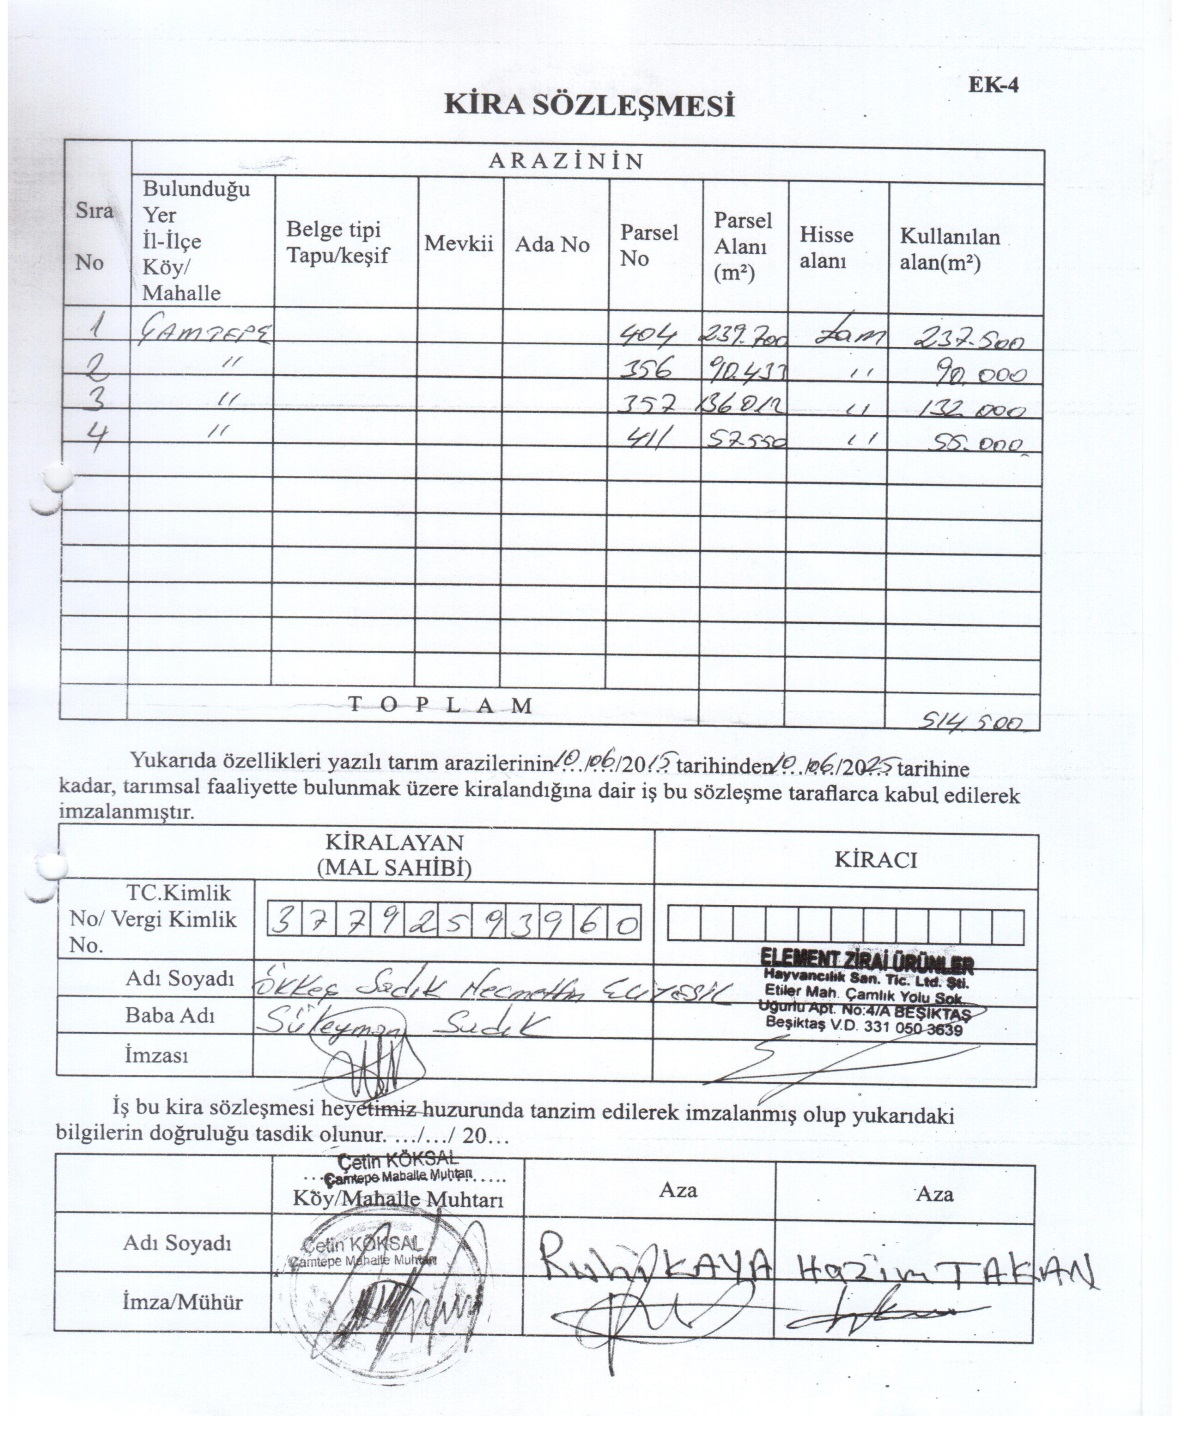 EK-4
KİRA SÖZLEŞMESİ
ARAZİNİN
Sıra No
Bulunduğu Yer İl-İlçe Köy/ Mahalle
Belge tipi Tapu/keşif
Mevkii
Ada No
Parsel No
Parsel Alanı (m²)
Hisse alanı
Kullanılan alan(m²)
1 ÇAMTEPE 404 239.700 tam 237.500
2 " 356 90.437 " 90.000
3 " 357 136012 " 132.000
4 " 411 57.550 " 55.000
TOPLAM 514.500
Yukarıda özellikleri yazılı tarım arazilerinin 10/06/2015 tarihinden 10/06/2025 tarihine
kadar, tarımsal faaliyette bulunmak üzere kiralandığına dair iş bu sözleşme taraflarca kabul edilerek
imzalanmıştır.
KİRALAYAN
(MAL SAHİBİ)
KİRACI
TC.Kimlik
No/ Vergi Kimlik
No.
37792593960
Adı Soyadı Ökkeş Sadık Necmettin ECİYEŞİL
Baba Adı Süleyman Sadık
İmzası
ELEMENT ZİRAİ ÜRÜNLER
Hayvancılık San. Tic. Ltd. Şti.
Etiler Mah. Çamlık Yolu Sok.
Uğurlu Apt. No:4/A BEŞİKTAŞ
Beşiktaş V.D. 331 050 3639
İş bu kira sözleşmesi heyetimiz huzurunda tanzim edilerek imzalanmış olup yukarıdaki
bilgilerin doğruluğu tasdik olunur. .../.../ 20...
Çetin KÖKSAL
Çamtepe Mahalle Muhtarı
Köy/Mahalle Muhtarı
Aza
Aza
Adı Soyadı
Çetin KÖKSAL
Çamtepe Mahalle Muhtarı
Ruhi KAYA
Hazim TAKAN
İmza/Mühür